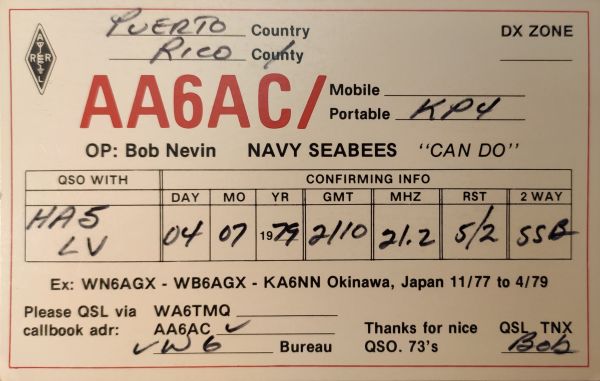 PUERTO Country DX ZONE
RICO County
ARRL
AA6AC/
Mobile
Portable KP4
OP: Bob Nevin NAVY SEABEES "CAN DO"
QSO WITH CONFIRMING INFO
DAY MO YR GMT MHZ RST 2 WAY
HA5 LV 04 07 1979 2110 21.2 5/2 SSB
Ex: WN6AGX - WB6AGX - KA6NN Okinawa, Japan 11/77 to 4/79
Please QSL via WA6TMQ
callbook adr: AA6AC ✓ Thanks for nice QSL TNX
✓ W6 Bureau QSO. 73's Bob